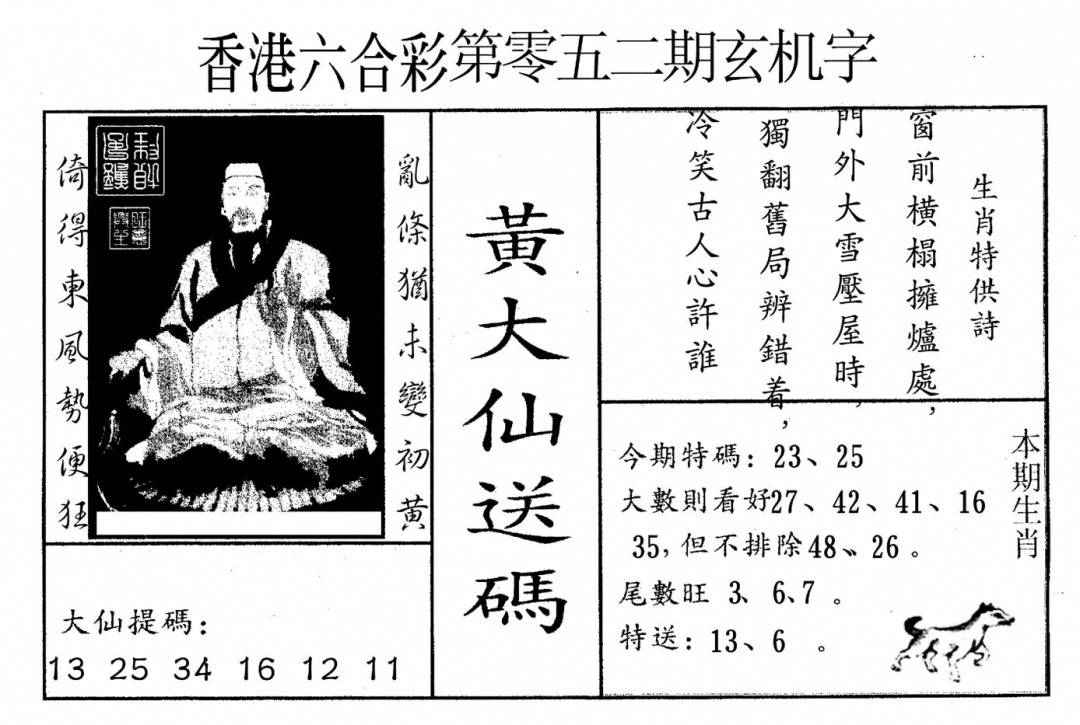 香港六合彩第零五二期玄机字
亂條猶未變初黃
倚得東風勢便狂
大仙提碼：
13 25 34 16 12 11
黃大仙送碼
生肖特供詩
窗前橫榻擁爐處，
門外大雪壓屋時，
獨翻舊局辨錯着，
冷笑古人心許誰
本期生肖
今期特碼：23、25
大數則看好27、42、41、16
35，但不排除48、26。
尾數旺 3、6、7 。
特送：13、6 。